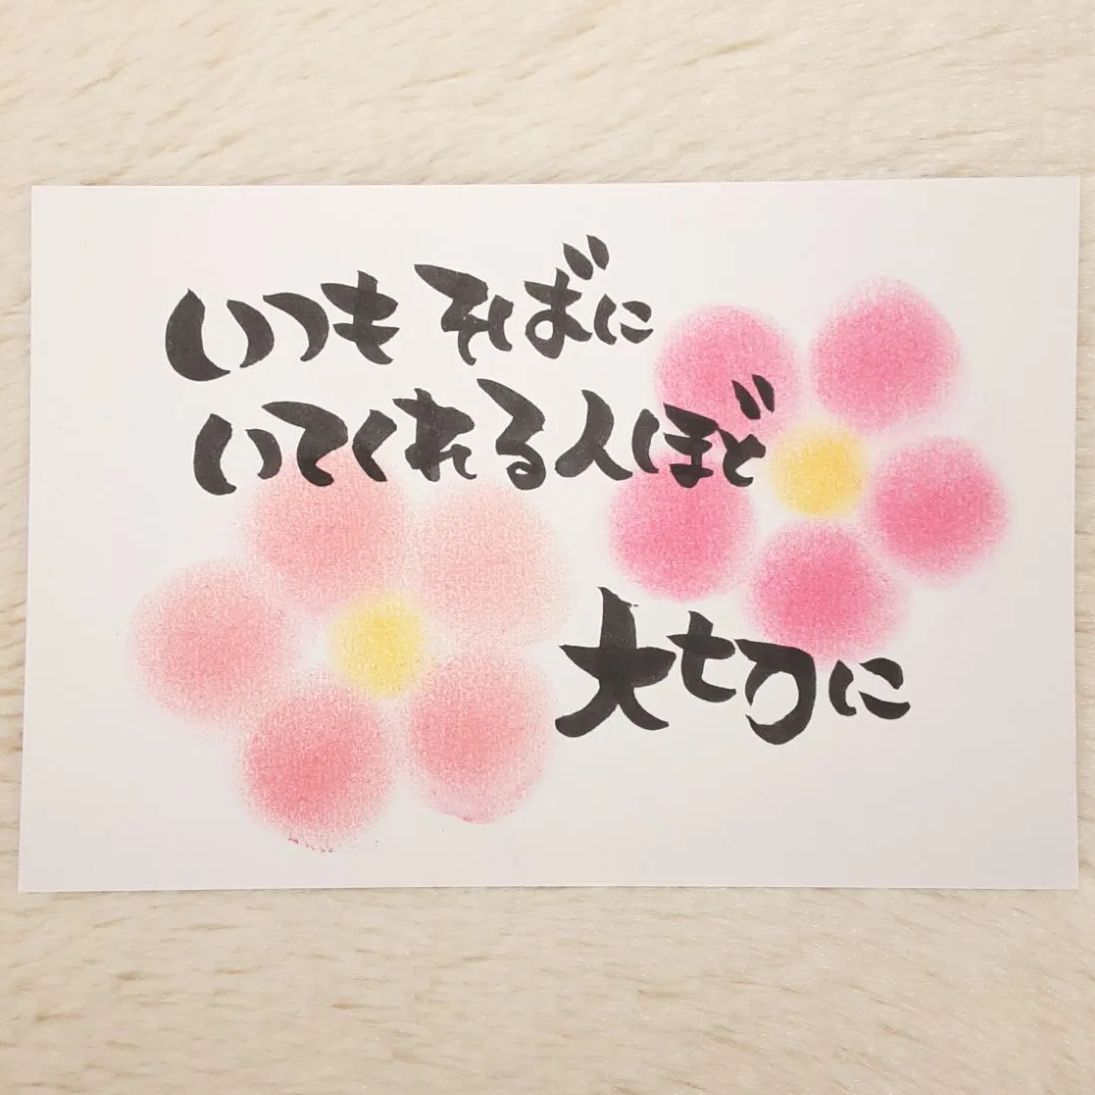 いつもそばに
いてくれる人ほど
大切に